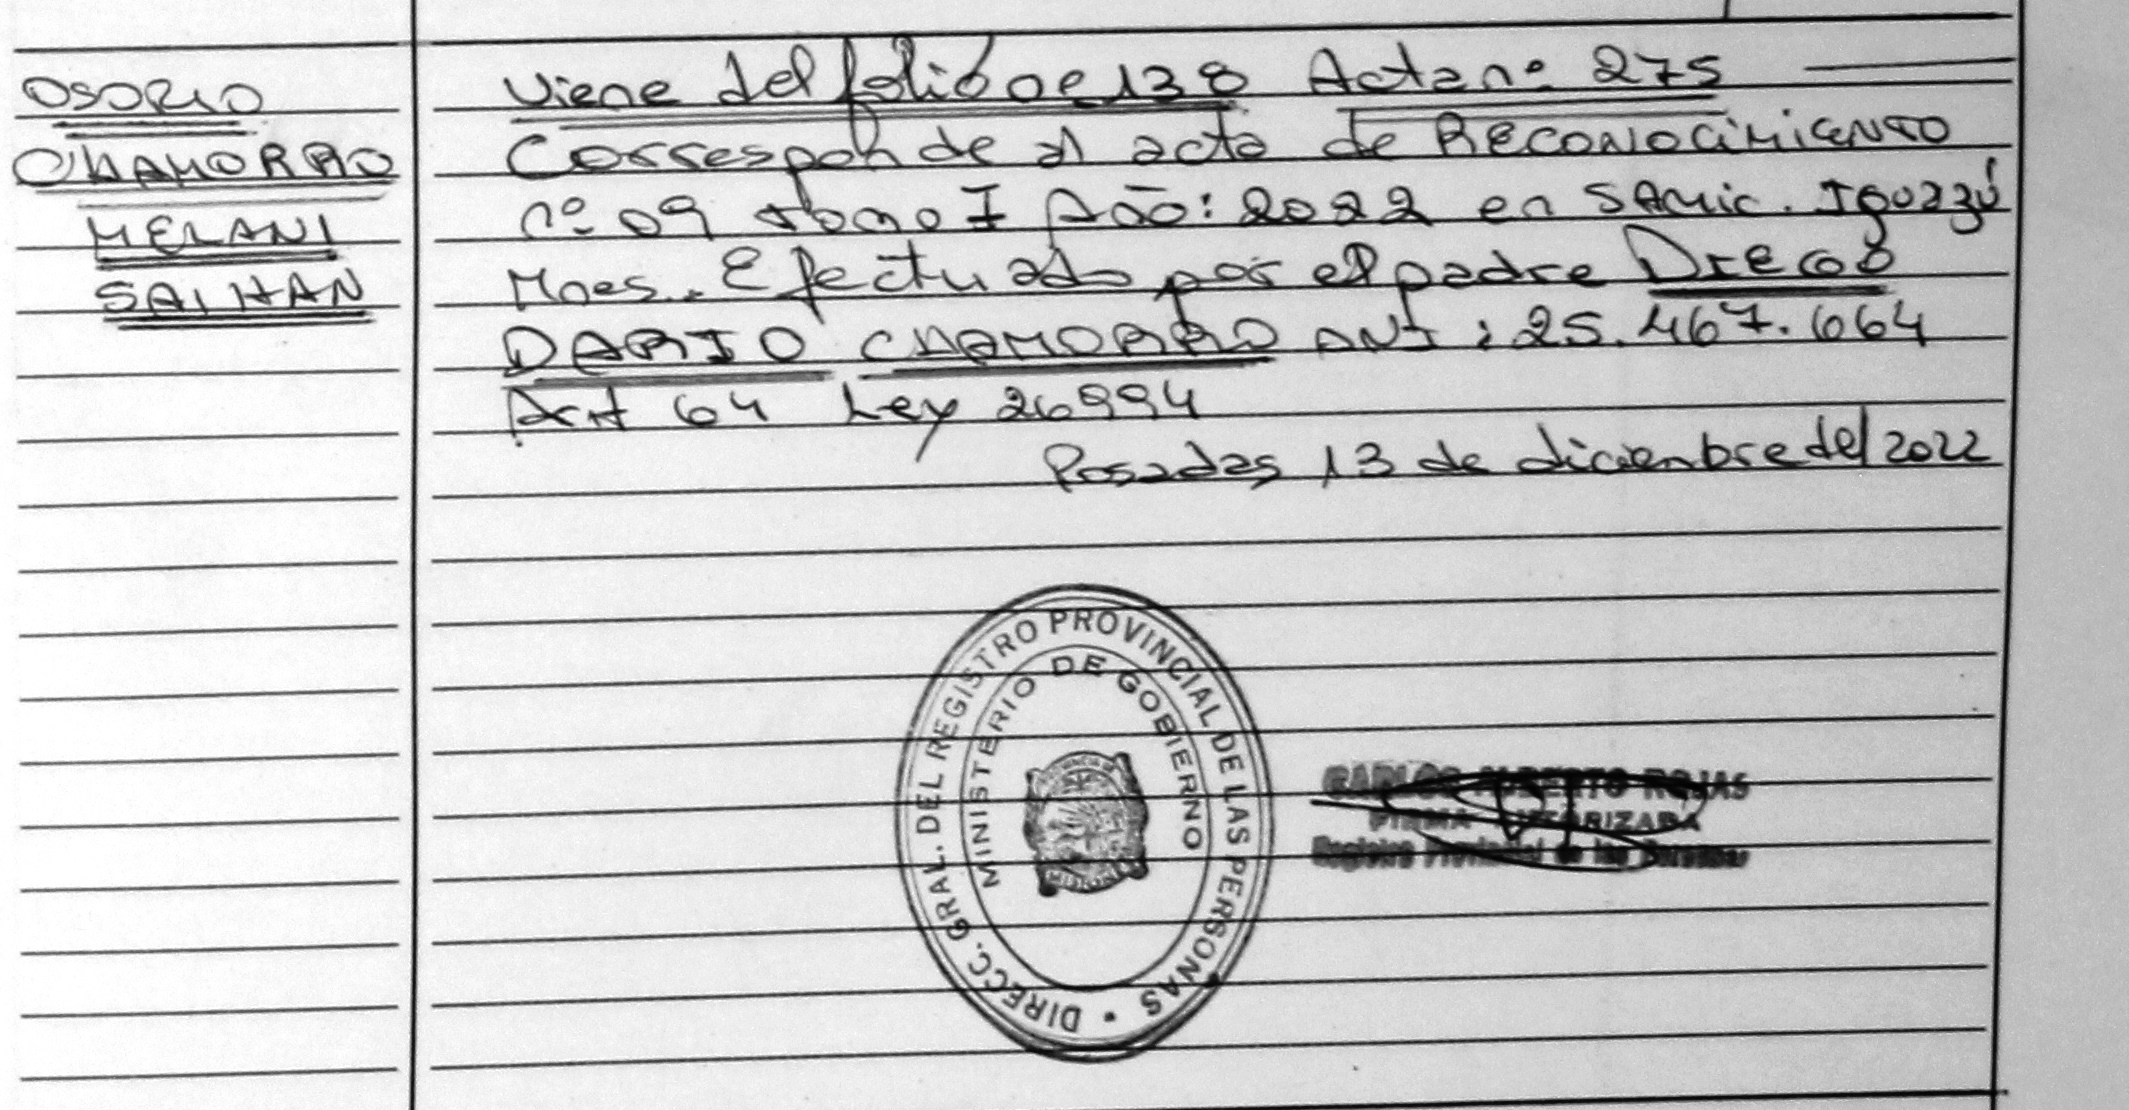 OSORIO
CHAMORRO
MELANI
SAIHAN
Viene del folio 138 Acta nº 275
Corresponde al acta de Reconocimiento
nº 09 tomo I Año: 2022 en SAMic. Iguazú
Mnes. Efectuado por el padre DIEGO
DARIO CHAMORRO DNI: 25.467.664
Art 64 Ley 26994
Posadas 13 de diciembre del 2022
DIRECC. GRAL. DEL REGISTRO PROVINCIAL DE LAS PERSONAS
MINISTERIO DE GOBIERNO
CARLOS ALBERTO ROJAS
FIRMA AUTORIZADA
Registro Provincial de las Personas